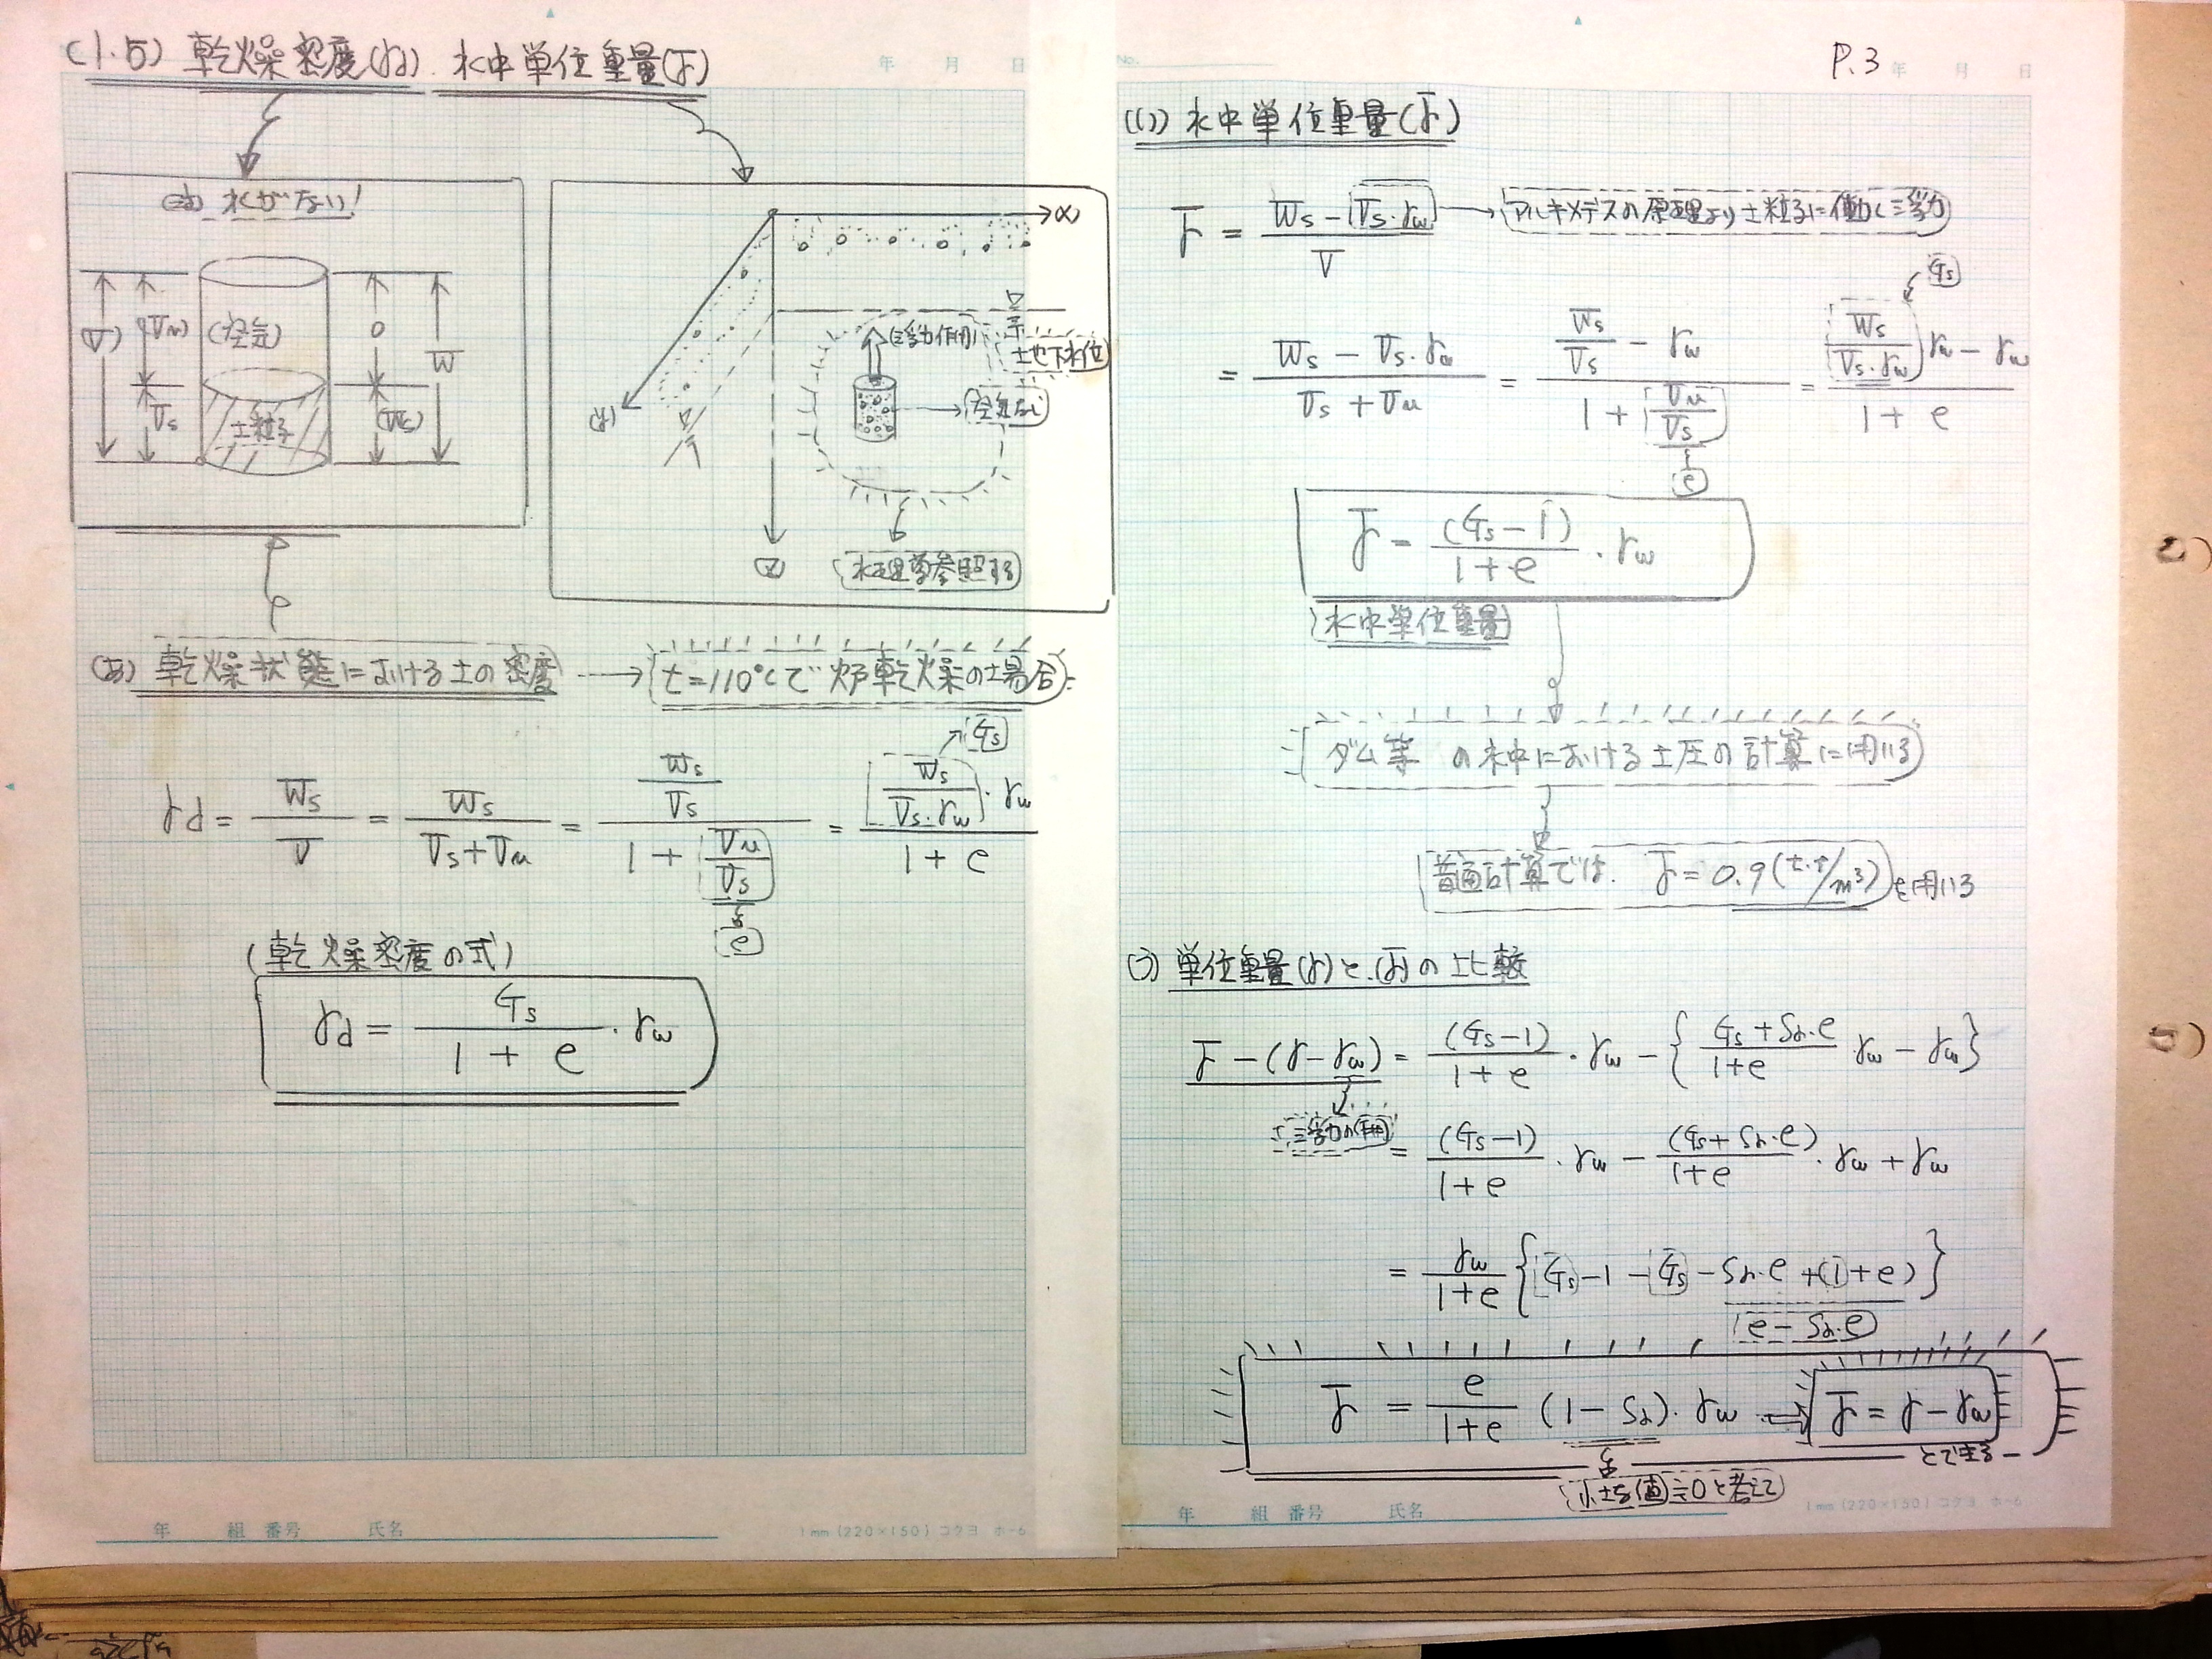 (1.5) 乾燥密度(γd). 水中単位重量(γ̄)
水がない!
(V) (Vv) Vs
(空気)
土粒子
0 (Ws) W
(x)
(y)
(z)
(浮力作用)
地下水位
空気なし
水理学参照する
(あ) 乾燥状態における土の密度 → t=110℃で炉乾燥の場合
Gs
γd = Ws/V = Ws/(Vs+Vv) = (Ws/Vs)/(1 + Vv/Vs) = (Ws/(Vs·γw))·γw/(1 + e)
e
(乾燥密度の式)
γd = Gs/(1 + e)·γw
年 組 番号 氏名
1mm (220×150) コクヨ ホ-6
年 月 日
No.
P.3 年 月 日
(い) 水中単位重量(γ̄)
γ̄ = (Ws − Vs·γw)/V → アルキメデスの原理より土粒子に働く浮力
Gs
= (Ws − Vs·γw)/(Vs + Vv) = (Ws/Vs − γw)/(1 + Vv/Vs) = ((Ws/(Vs·γw))γw − γw)/(1 + e)
e
γ̄ = (Gs − 1)/(1+e)·γw
水中単位重量
ダム等の水中における土圧の計算に用いる
普通計算では. γ̄ = 0.9 (t·f/m³) を用いる
(う) 単位重量(γ)と(γ̄)の比較
γ̄ − (γ − γw) = (Gs−1)/(1+e)·γw − {(Gs + Sr·e)/(1+e) γw − γw}
浮力の作用
= (Gs−1)/(1+e)·γw − (Gs + Sr·e)/(1+e)·γw + γw
= γw/(1+e) {Gs − 1 − Gs − Sr·e + (1+e)}
e − Sr·e
γ̄ = e/(1+e) (1 − Sr)·γw ⇒ γ̄ = γ − γw
とできる
小さな値≒0と考えて
年 組 番号 氏名
1mm (220×150) コクヨ ホ-6